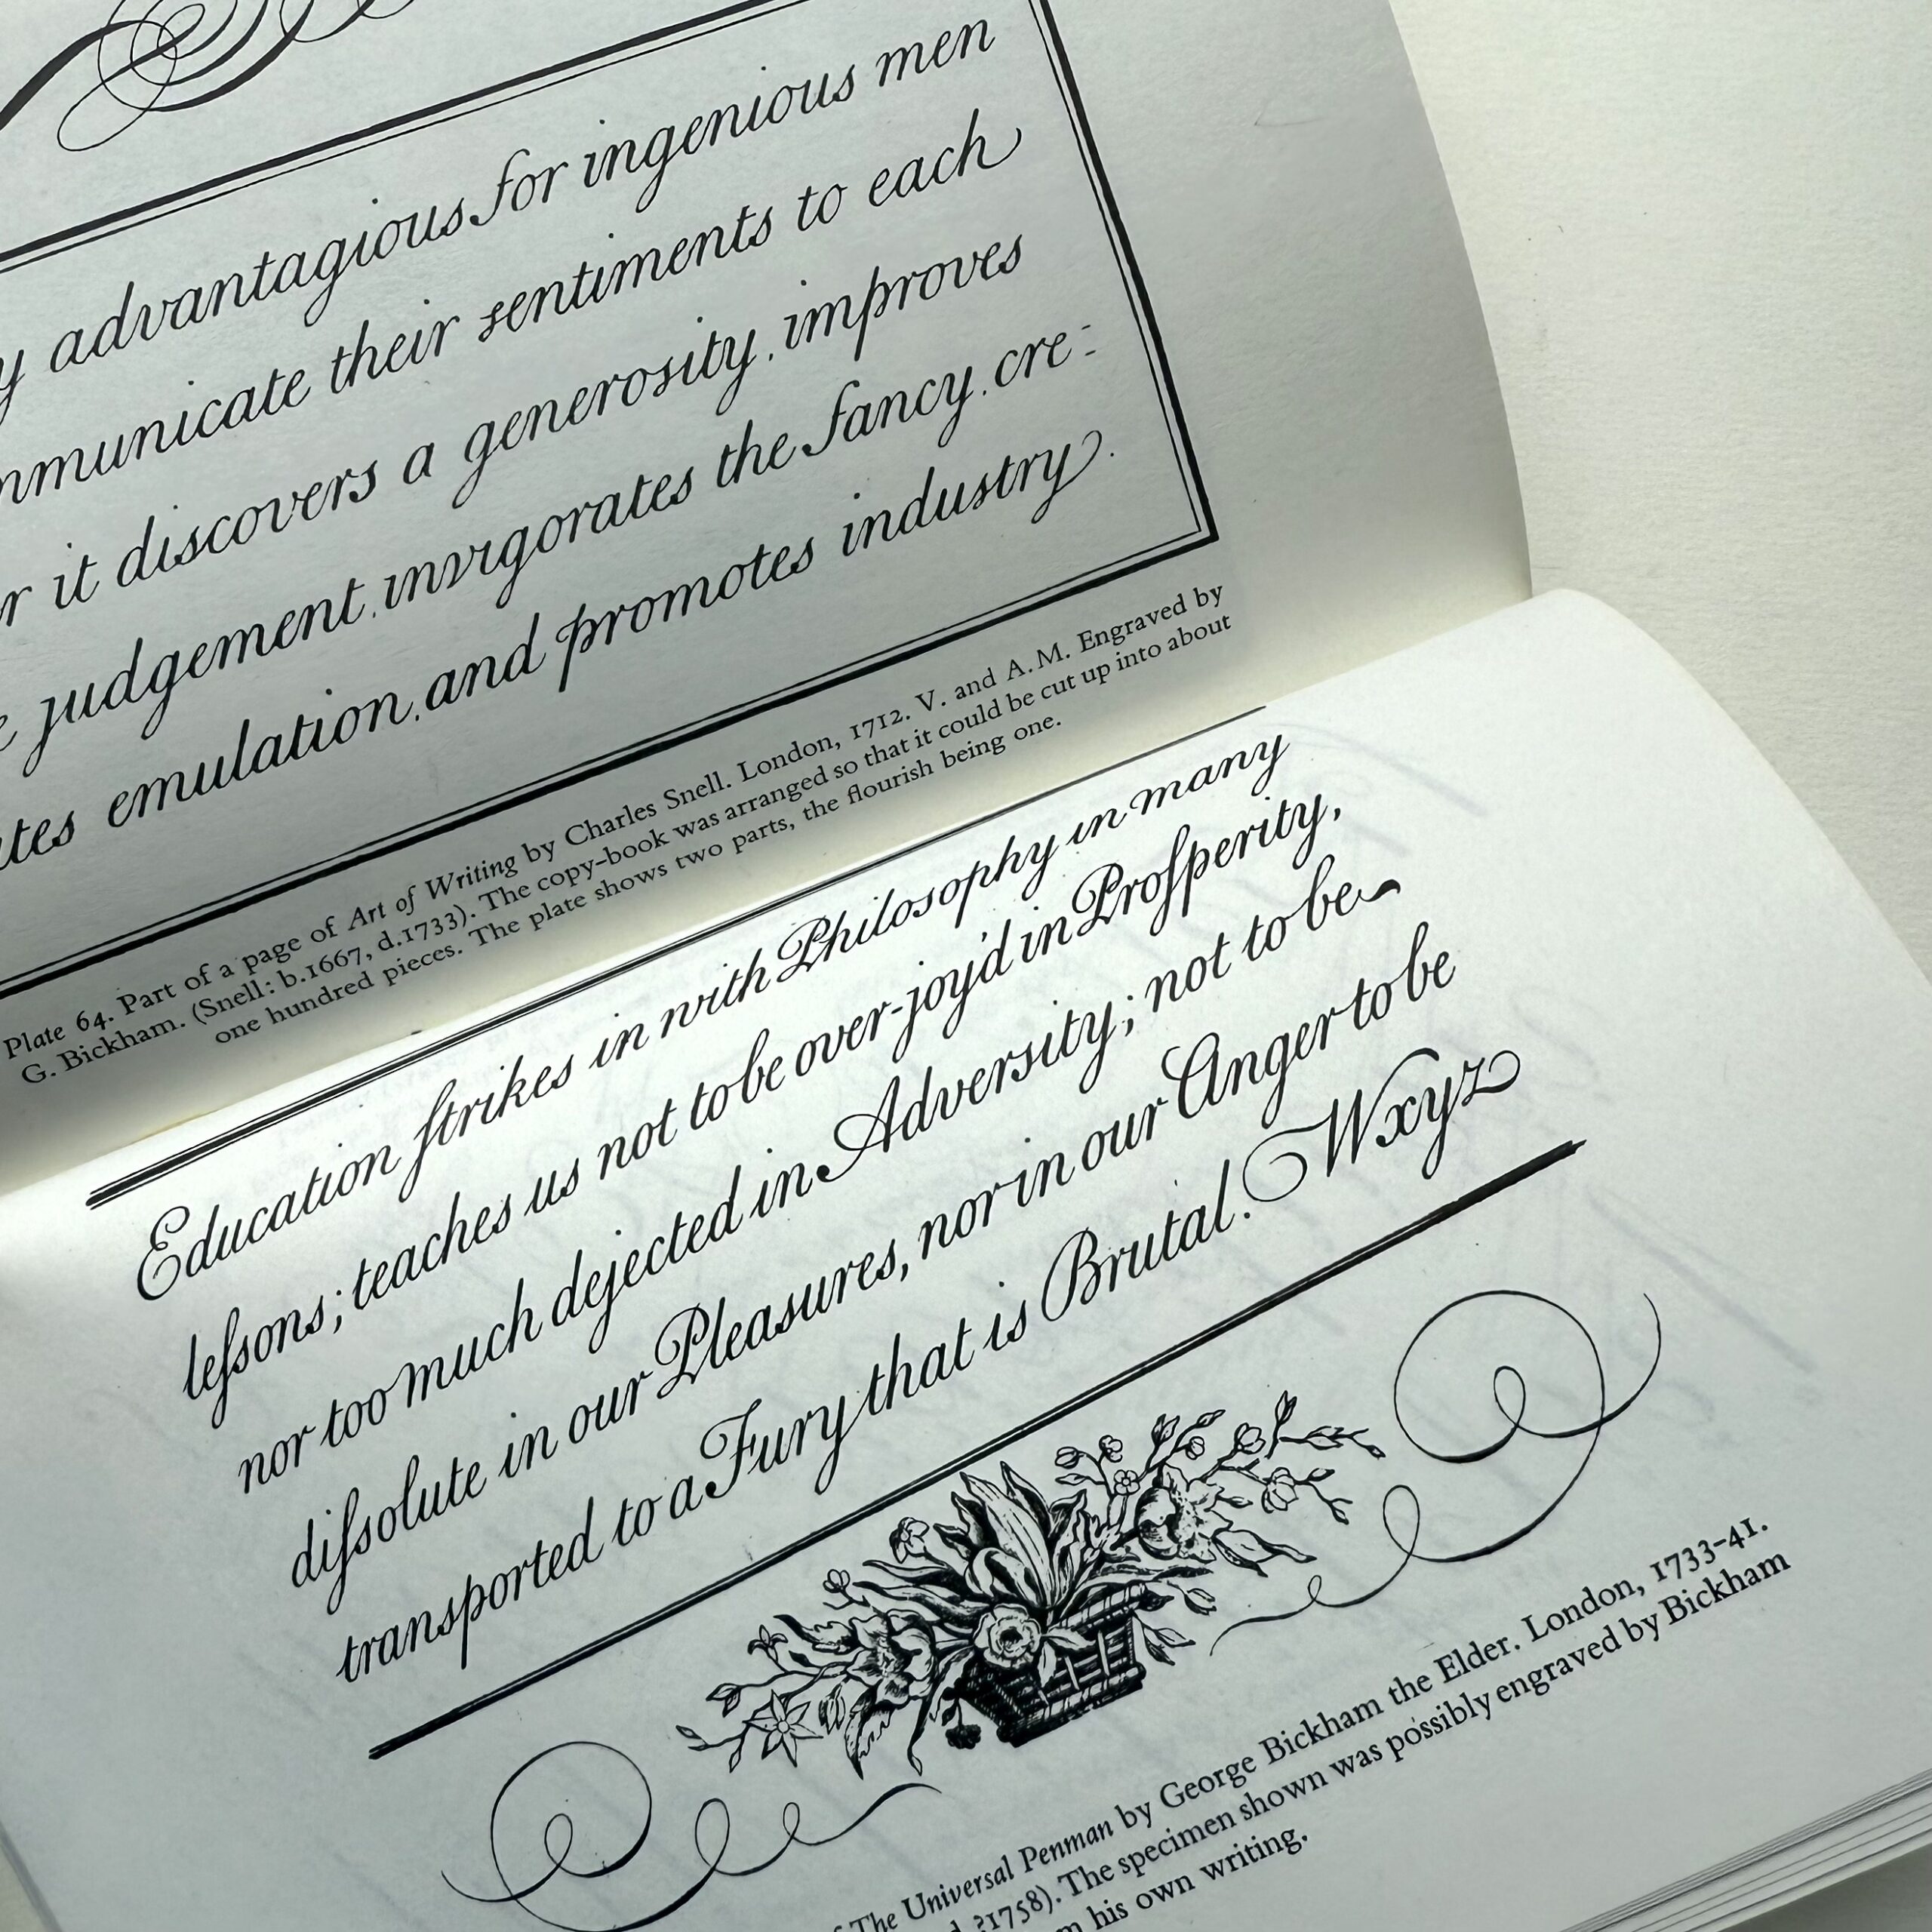 advantagious for ingenious men
their sentiments to each
it discovers a generosity, improves
judgement, invigorates the fancy, cre=
emulation, and promotes industry.
Plate 64. Part of a page of Art of Writing by Charles Snell. London, 1712. V. and A.M. Engraved by
G. Bickham. (Snell: b.1667, d.1733). The copy-book was arranged so that it could be cut up into about
one hundred pieces. The plate shows two parts, the flourish being one.
Education ſtrikes in with Philosophy in many
leſsons; teaches us not to be over-joy'd in Proſperity,
nor too much dejected in Adversity; not to be
diſsolute in our Pleasures, nor in our Anger to be
transported to a Fury that is Brutal. Wxyz
The Universal Penman by George Bickham the Elder. London, 1733-41.
?1758). The specimen shown was possibly engraved by Bickham
his own writing.